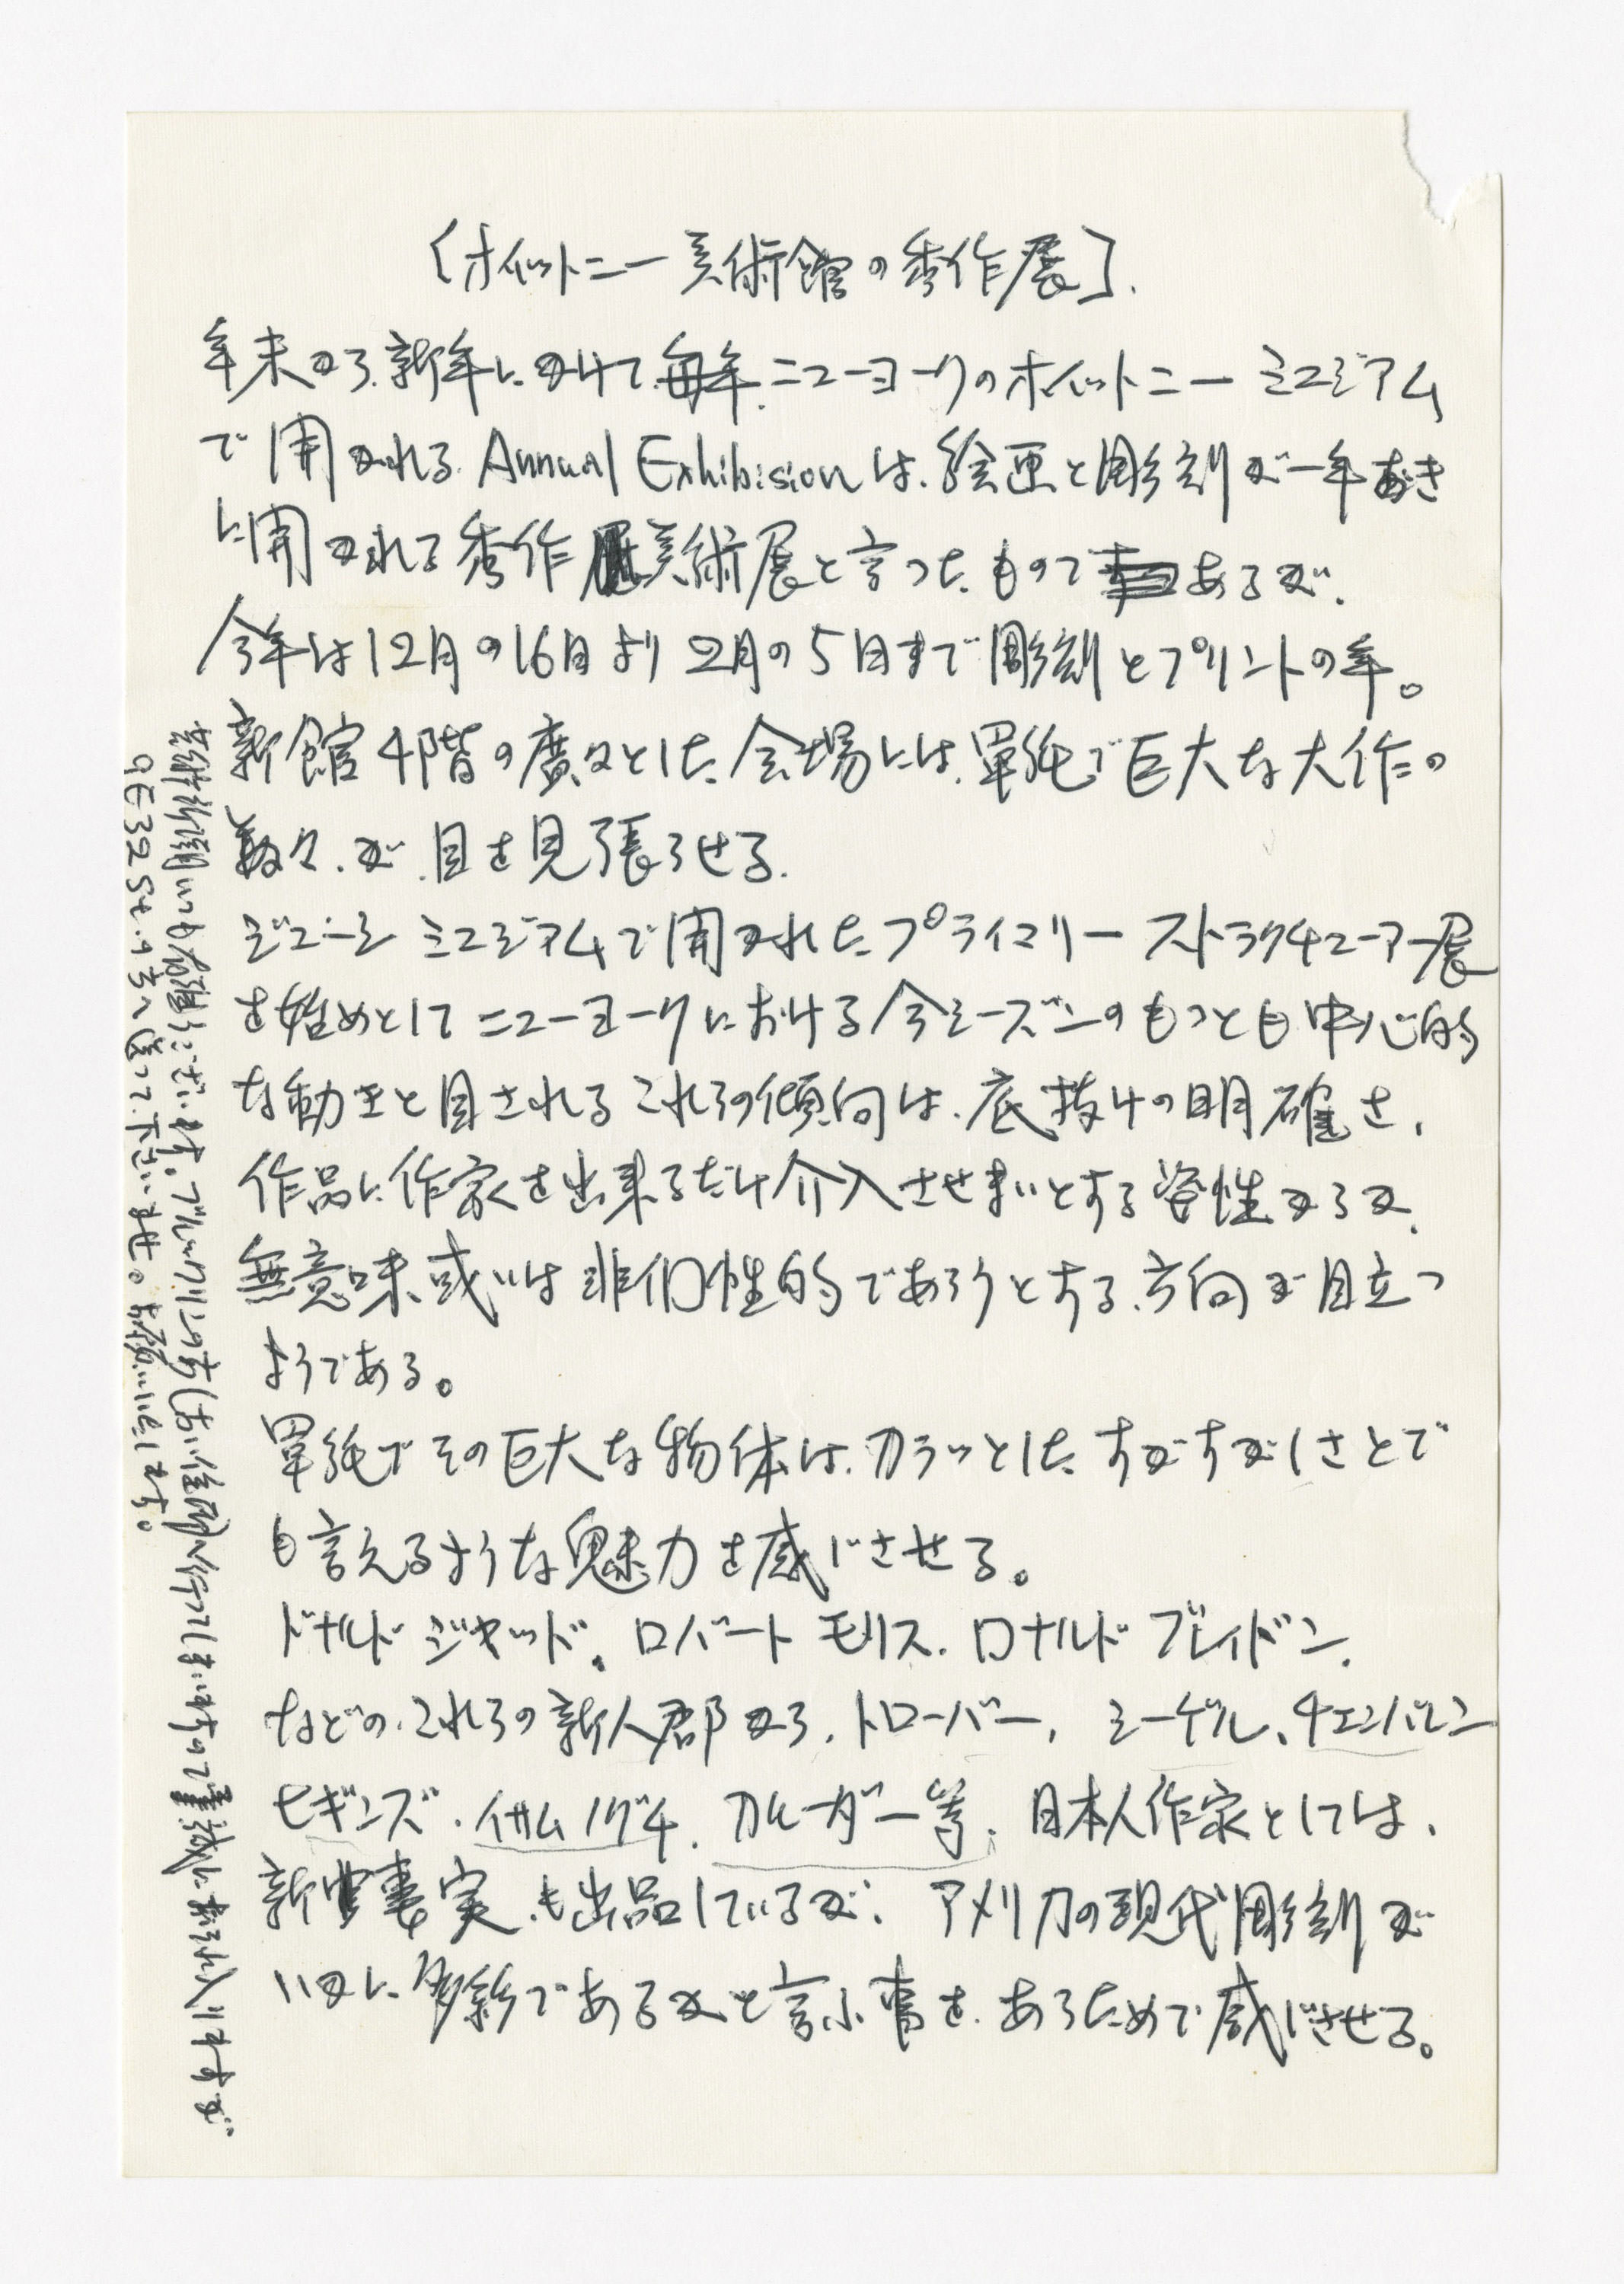 〔ホイットニー美術館の秀作展〕.
年末から、新年にかけて、毎年、ニューヨークのホイットニー ミュジアム
で開かれる. Annual Exhibisionは、絵画と彫刻が一年おき
に開かれる秀作美術展と言ったものであるが、
今年は12月の16日より2月の5日まで彫刻とプリントの年。
新館4階の廣々とした会場には、單純で巨大な大作の
数々.が.目を見張らせる.
ジューシ ミュジアムで開かれたプライマリー ストラクチューアー展
を始めとして ニューヨークにおける今シーズンのもっとも中心的
な動きと目されるこれらの傾向は、底抜けの明確さ、
作品に作家を出来るだけ介入させまいとする姿性からか、
無意味、或いは非個性的であろうとする、方向が目立つ
ようである。
單純でその巨大な物体は、カラッとしたすがすがしさとで
も言えるような魅力を感じさせる。
ドナルド ジャッド、ロバート モリス、ロナルド ブレイドン、
などの、これらの新人郡から、トローバー、シーゲル、チェンバレン
ヒギンズ、イサム ノグチ、カルーダー等、日本人作家としては、
新妻実も出品しているが、アメリカの現代彫刻が
いかに多彩であるかと言ふ事を、あらためで感じさせる。
芸術新潮いつも有難うございます。ブルックリンの方(古い住所)へ行ってしまいますので重誠におそれ入りますが
9E32St.の方へ送って下さいませ。お願いいたします。